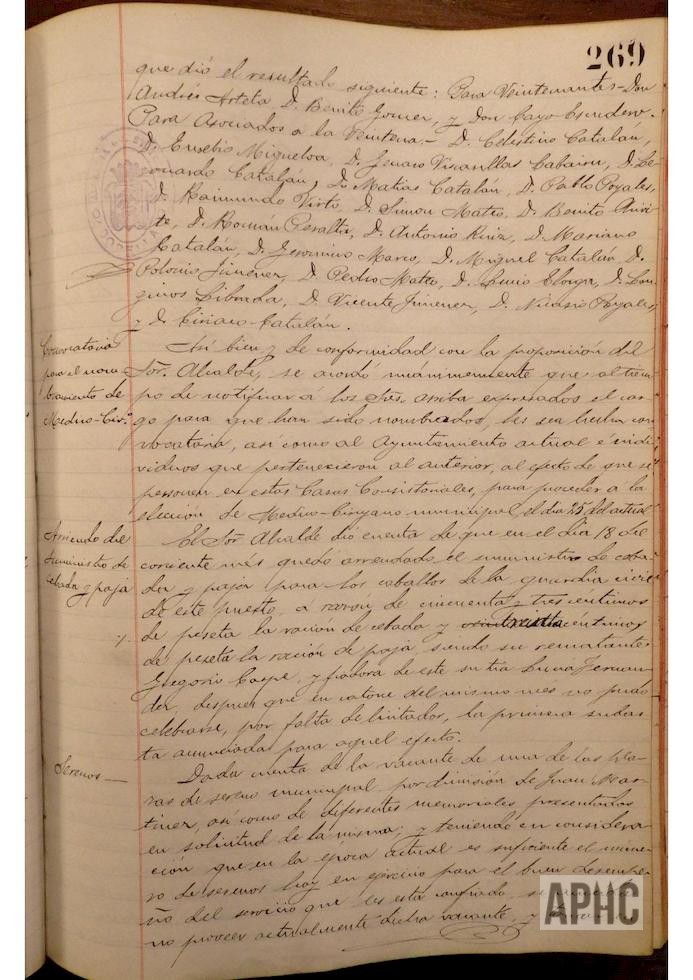 269
que dió el resultado siguiente: Para Veintenantes - Don
Andrés Arteta, D. Benito Gomer, y Don Cayo Escudero.
Para Asociados a la Veintena - D. Celestino Catalán,
D. Eusebio Migueloa, D. Genaro Visarillas Cabairu, D. Le-
onardo Catalán, D. Matias Catalán, D. Pablo Poyales,
D. Raimundo Virto, D. Simon Mateo, D. Benito
te, D. Román Peralta, D. Antonio Ruiz, D. Mariano
Catalán, D. Jeronimo Marco, D. Miguel Catalán, D.
Polonio Jimener, D. Pedro Mateo, D. Lucio Elorga, D. Lon-
ginos Librada, D. Vicente Jimener, D. Nicasio Poyales,
y D. Ciriaco Catalán.
Convocatoria
para el nom-
bramiento de
Medico-Cir.
Asi bien y de conformidad con la proposición del
Sor. Alcalde, se acordó unánimemente que al tiem-
po de notificar a los Sres. arriba expresados el car-
go para que han sido nombrados, les sea hecha con-
vocatoria, así como al Ayuntamiento actual é indi-
viduos que pertenecieron al anterior, al efecto de que se
personen en estas Casas Consistoriales, para proceder a la
elección de Medico-Cirujano municipal el dia 25 del actual
Arriendo del
suministro de
cebada y paja
El Sor Alcalde dio cuenta de que en el dia 18 del
corriente mes quedó arrendado el suministro de ceba-
da y paja para los caballos de la guardia civil
de este puesto, á razón de cincuenta y tres céntimos
de peseta la ración de cebada y treinta céntimos
de peseta la ración de paja, siendo su rematante
Gregorio Caspe, y fiadora de este su tia Luisa Fernan-
der, despues que en catorce del mismo mes no pudo
celebrarse, por falta de licitador, la primera subas-
ta anunciada para aquel efecto.
Serenos
Dada cuenta de la vacante de una de las pla-
ras de sereno municipal, por dimisión de Juan Mar-
tiner, asi como de diferentes memoriales presentados
en solicitud de la misma; y teniendo en considera-
ción que en la época actual es suficiente el núme-
ro de serenos hoy en ejercicio para el buen desempe-
ño del servicio que les está confiado, se
no proveer actualmente dicha vacante, y
APHC